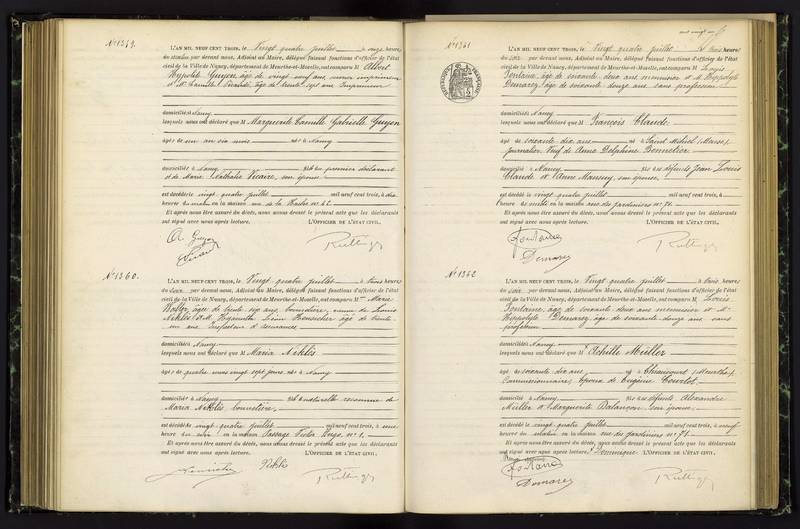 N° 1359.
L'AN MIL NEUF CENT TROIS, le Vingt quatre juillet à onze heures
du matin par devant nous, Adjoint au Maire, délégué faisant fonctions d'officier de l'état
civil de la Ville de Nancy, département de Meurthe-et-Moselle, ont comparu M Albert
Hypolite Guyon, âgé de vingt neuf ans imprimeur
et M Camille âgé de trente sept ans Imprimeur
domiciliés à Nancy
lesquels nous ont déclaré que M Marguerite Camille Gabrielle Guyon
âgée de un an six mois née à Nancy
domiciliée à Nancy fille du premier déclarant
et de Marie Nathalie Vicaire, son épouse
est décédée le vingt quatre juillet mil neuf cent trois, à dix
heures du matin en la maison rue de la
Et après nous être assuré du décès, nous avons dressé le présent acte que les déclarants
ont signé avec nous après lecture. L'OFFICIER DE L'ÉTAT CIVIL,
A. Guyon
N° 1360.
L'AN MIL NEUF CENT TROIS, le Vingt quatre juillet à trois heures
du soir par devant nous, Adjoint au Maire, délégué faisant fonctions d'officier de l'état
civil de la Ville de Nancy, département de Meurthe-et-Moselle, ont comparu Mme Marie
âgée de trente six ans, veuve de Louis
Nicklès et M. Hyacinthe âgé de trente
un ans Inspecteur d'assurances
domiciliés à Nancy
lesquels nous ont déclaré que M Maria Nicklès
âgée de quatre mois vingt sept jours née à Nancy
domiciliée à Nancy fille naturelle reconnue de
Maria Nicklès,
est décédée le vingt quatre juillet mil neuf cent trois, à une
heure du soir en la maison Passage Victor Hugo, n° 1.
Et après nous être assuré du décès, nous avons dressé le présent acte que les déclarants
ont signé avec nous après lecture. L'OFFICIER DE L'ÉTAT CIVIL,
N° 1361
L'AN MIL NEUF CENT TROIS, le Vingt quatre juillet à trois heures
du soir par devant nous, Adjoint au Maire, délégué faisant fonctions d'officier de l'état
civil de la Ville de Nancy, département de Meurthe-et-Moselle, ont comparu M Louis
Fontaine, âgé de soixante deux ans menuisier et M Hippolyte
Demarez, âgé de soixante douze ans sans profession
domiciliés à Nancy
lesquels nous ont déclaré que M François Claude
âgé de soixante dix ans né à Saint Mihiel (Meuse)
journalier Veuf de Anne Delphine Bonnetier
domicilié à Nancy fils des défunts Jean Louis
Claude et Anne Mansuy son épouse
est décédé le vingt quatre juillet mil neuf cent trois, à
heure du matin en la maison rue des jardiniers n° 71.
Et après nous être assuré du décès, nous avons dressé le présent acte que les déclarants
ont signé avec nous après lecture. L'OFFICIER DE L'ÉTAT CIVIL,
Fontaine
Demarez
N° 1362
L'AN MIL NEUF CENT TROIS, le Vingt quatre juillet à trois heures
du soir par devant nous, Adjoint au Maire, délégué faisant fonctions d'officier de l'état
civil de la Ville de Nancy, département de Meurthe-et-Moselle, ont comparu M Louis
Fontaine, âgé de soixante deux ans menuisier et M
Hippolyte Demarez, âgé de soixante douze ans sans
profession
domiciliés à Nancy
lesquels nous ont déclaré que M Achille Müller
âgé de soixante dix ans né à (Meurthe)
Commissionnaire, Epoux de Eugénie Courtot
domicilié à Nancy fils des défunts Alexandre
Müller et Marguerite son épouse
est décédé le vingt quatre juillet mil neuf cent trois, à neuf
heures du matin en la maison rue des jardiniers n° 71
Et après nous être assuré du décès, nous avons dressé le présent acte que les déclarants
ont signé avec nous après lecture. L'OFFICIER DE L'ÉTAT CIVIL,
Fontaine
Demarez